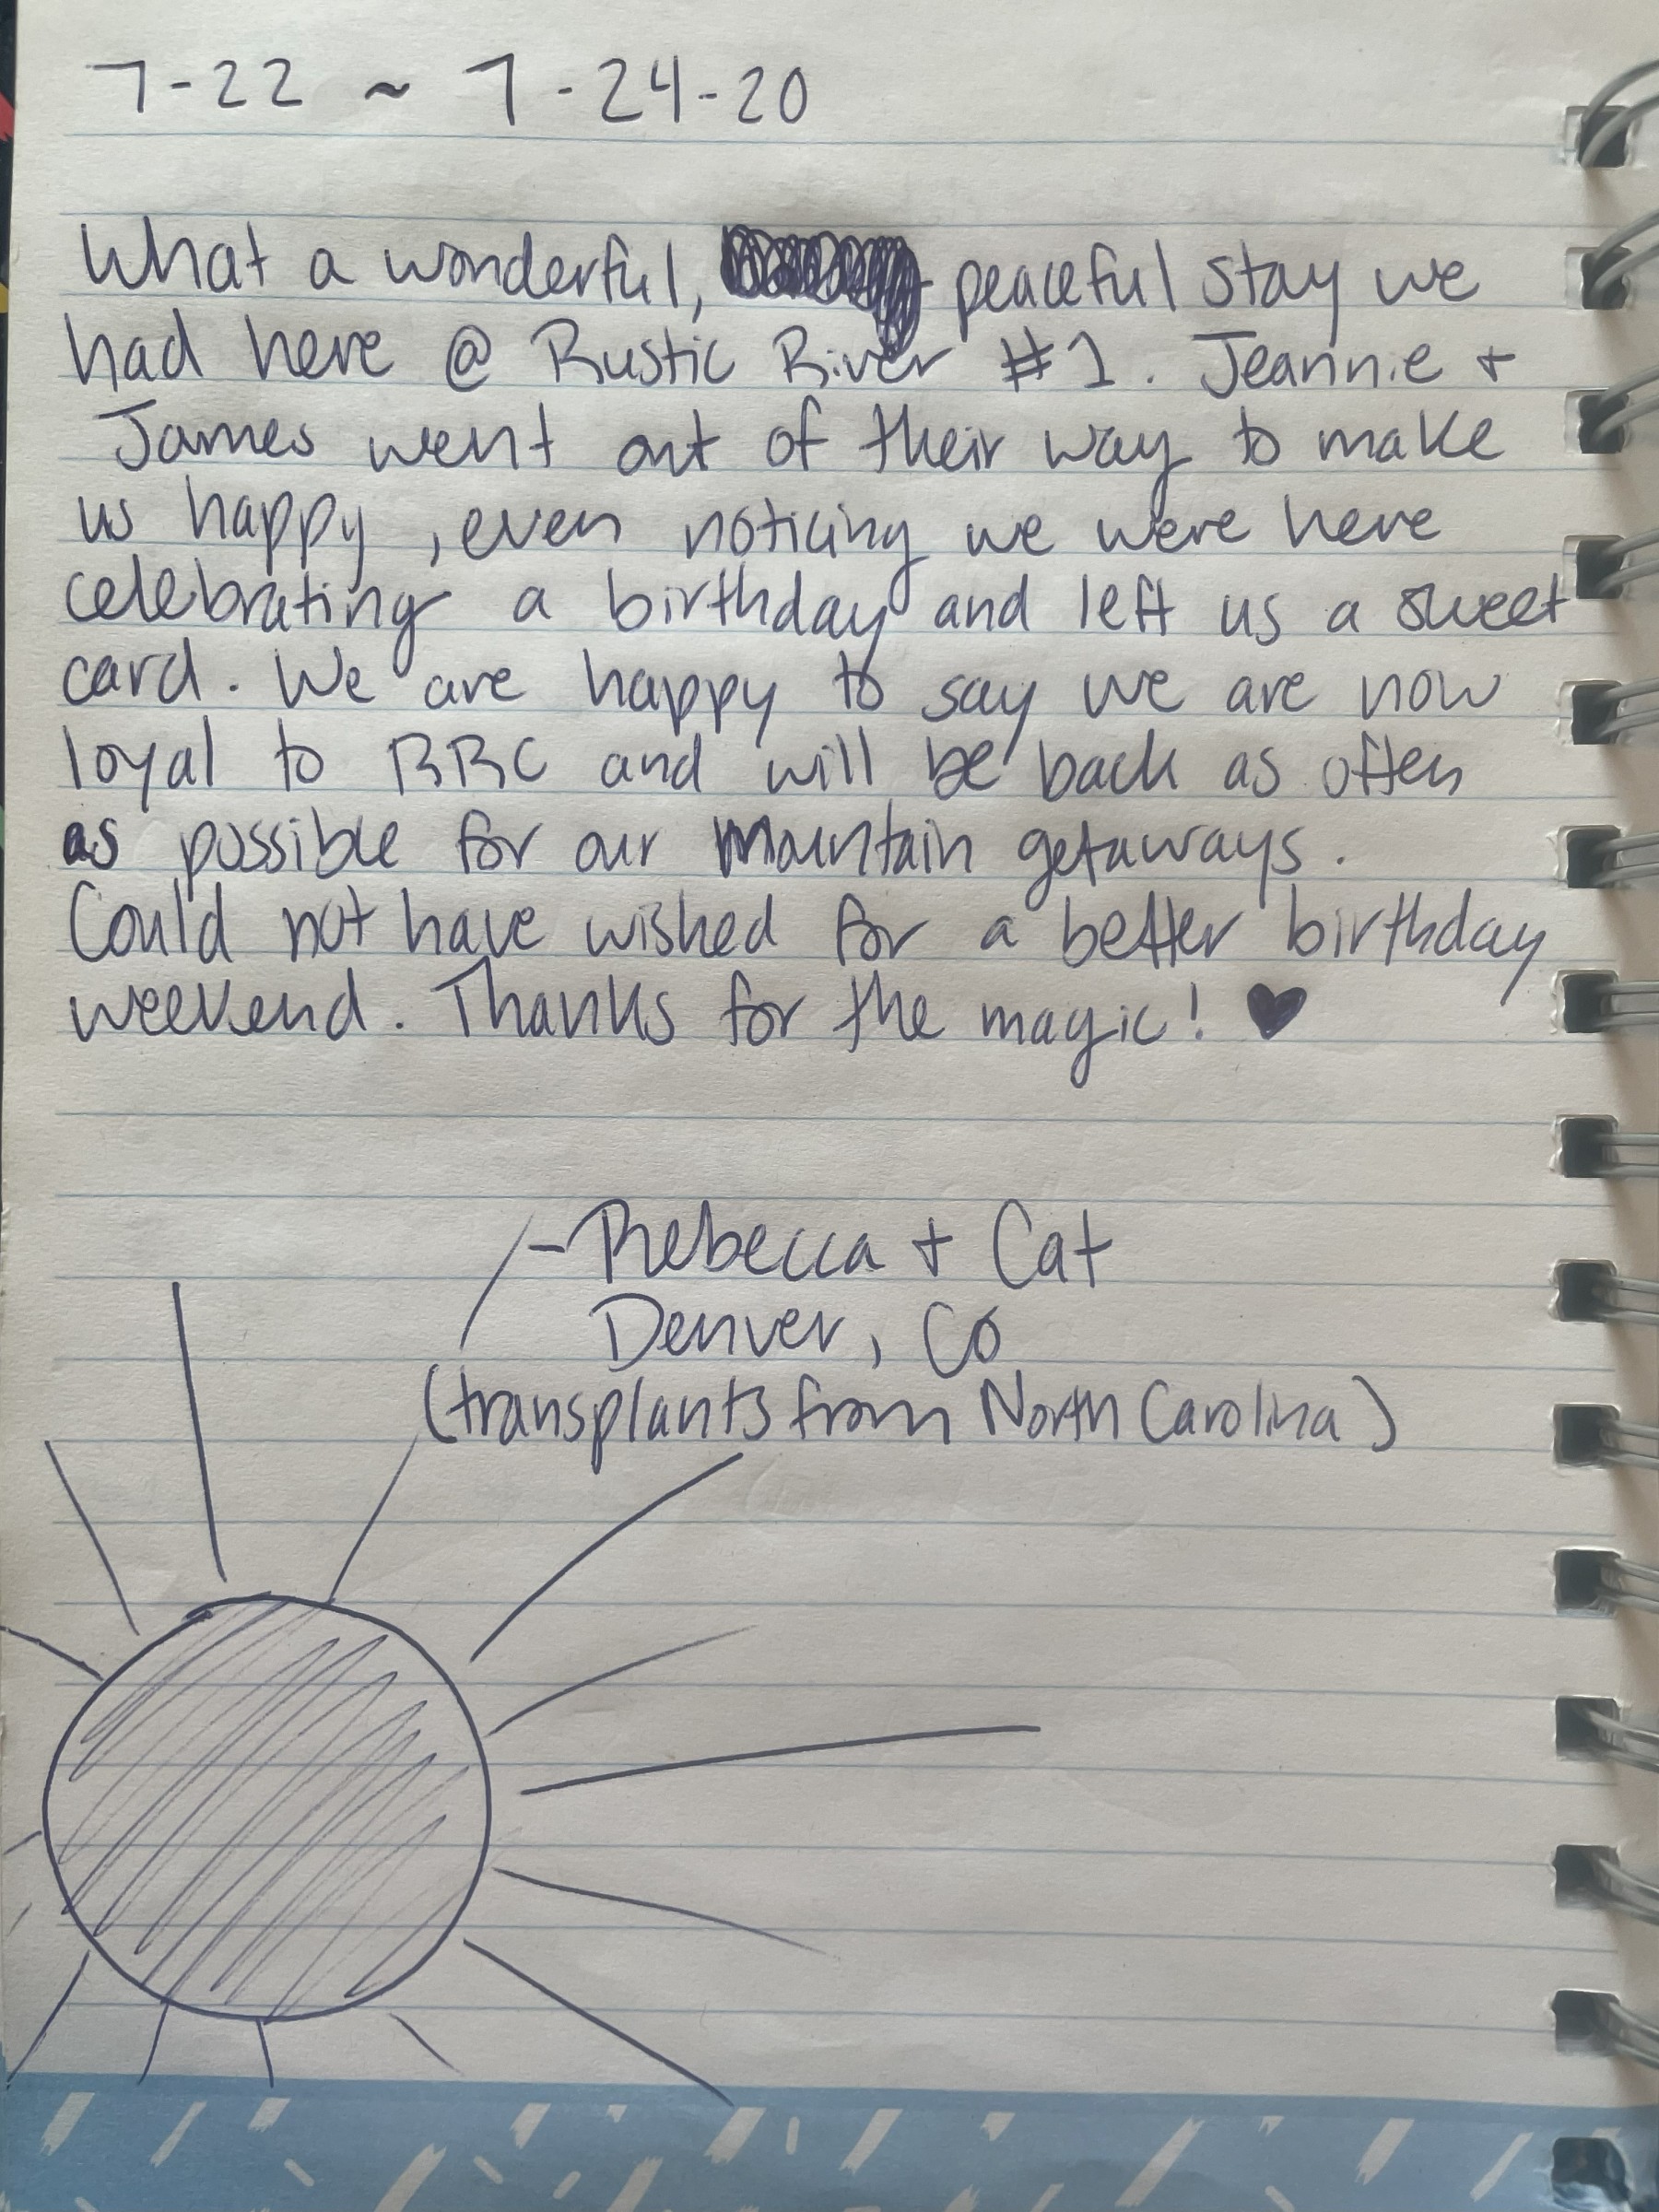 7-22 ~ 7-24-20
What a wonderful, peaceful stay we
had here @ Rustic River #1. Jeannie +
James went out of their way to make
us happy, even noticing we were here
celebrating a birthday and left us a sweet
card. We are happy to say we are now
loyal to RRC and will be back as often
as possible for our mountain getaways.
Could not have wished for a better birthday
weekend. Thanks for the magic! ♥
-Rebecca + Cat
Denver, CO
(transplants from North Carolina)